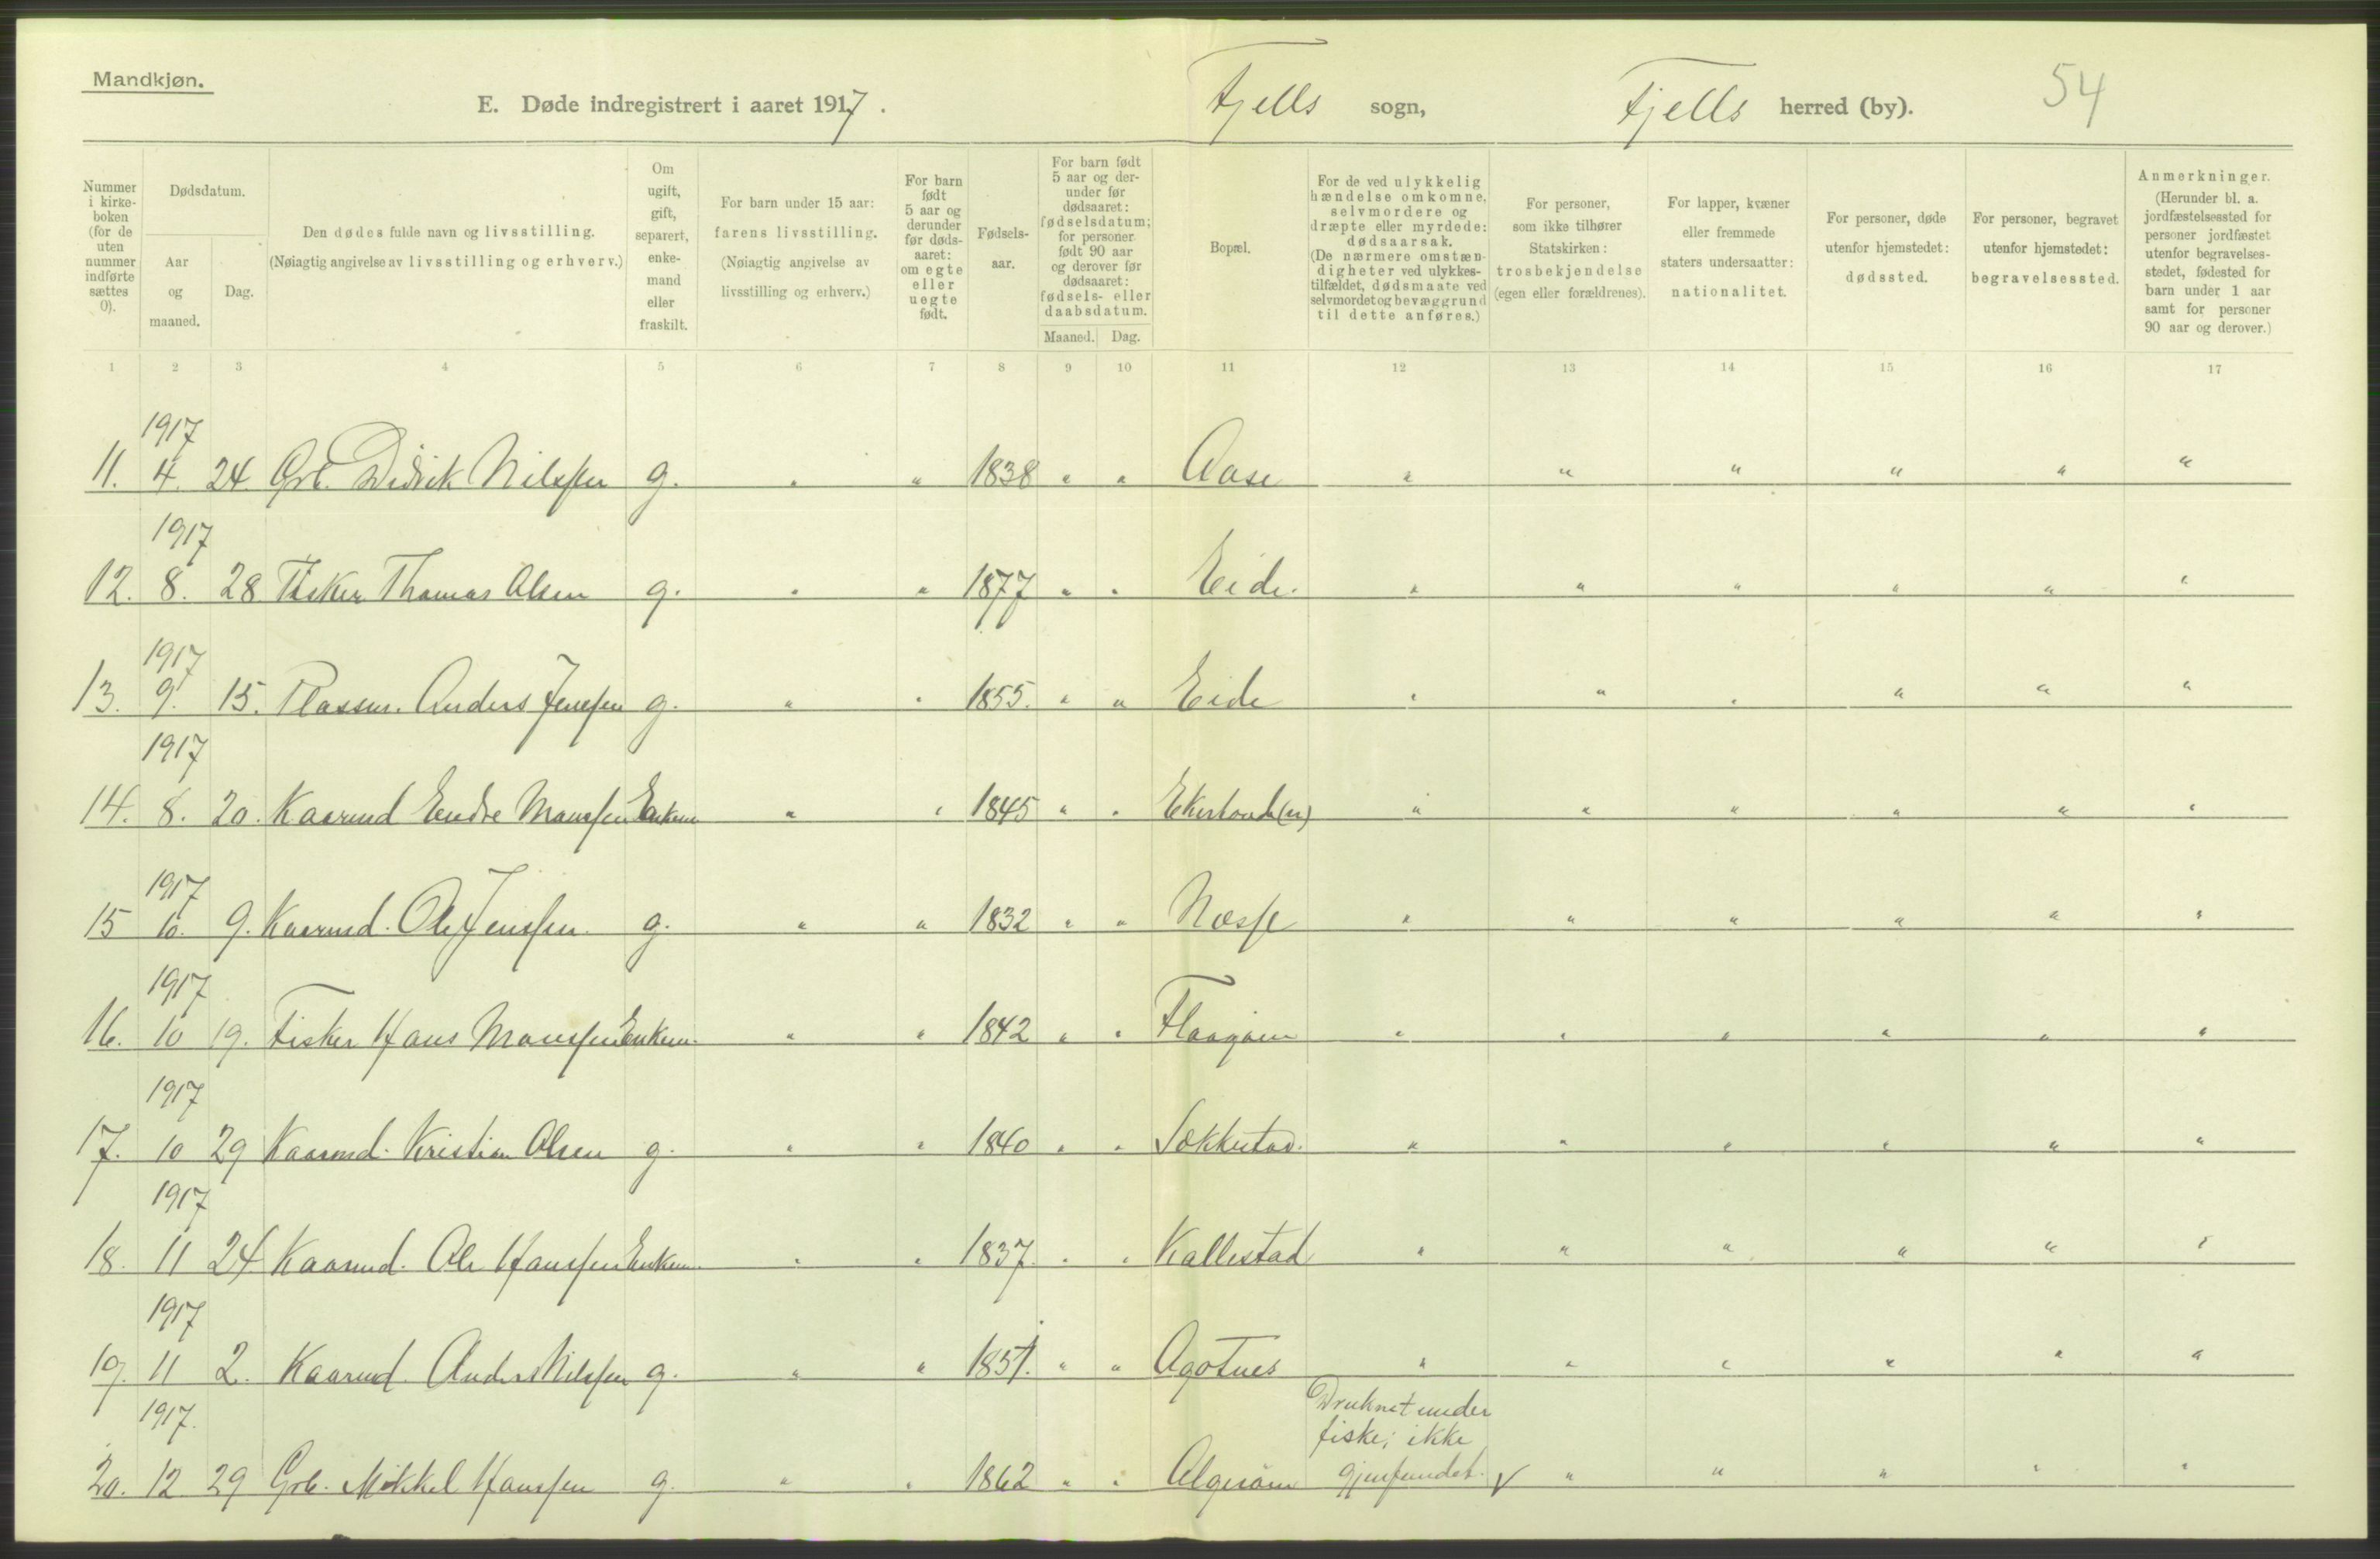 Mandkjøn.
E. Døde indregistrert i aaret 1917. Fjells sogn, Fjells herred (by). 54
Nummer i kirkeboken (for de uten nummer indførte sættes 0).
Dødsdatum.
Aar og maaned.
Dag.
Den dødes fulde navn og livsstilling.
(Nøiagtig angivelse av livsstilling og erhverv.)
Om ugift, gift, separert, enkemand eller fraskilt.
For barn under 15 aar: farens livsstilling.
(Nøiagtig angivelse av livsstilling og erhverv.)
For barn født 5 aar og derunder før dødsaaret: om egte eller uegte født.
Fødselsaar.
For barn født 5 aar og derunder før dødsaaret: fødselsdatum; for personer født 90 aar og derover før dødsaaret: fødsels- eller daabsdatum.
Maaned. Dag.
Bopæl.
For de ved ulykkelig hændelse omkomne, selvmordere og dræpte eller myrdede: dødsaarsak.
(De nærmere omstændigheter ved ulykkestilfældet, dødsmaate ved selvmordet og bevæggrund til dette anføres.)
For personer, som ikke tilhører Statskirken: trosbekjendelse (egen eller forældrenes).
For lapper, kvæner eller fremmede staters undersaatter: nationalitet.
For personer, døde utenfor hjemstedet: dødssted.
For personer, begravet utenfor hjemstedet: begravelsessted.
Anmerkninger.
(Herunder bl. a. jordfæstelsessted for personer jordfæstet utenfor begravelsesstedet, fødested for barn under 1 aar samt for personer 90 aar og derover.)
1 2 3 4 5 6 7 8 9 10 11 12 13 14 15 16 17
1917
11. 4. 24. Grb. Didrik Nilssen g. " " 1838 " " Aase " " " " " "
1917
12. 8. 28 Fisker Thomas Olsen g. " " 1877 " " Eide. " " " " " "
1917
13. 9. 15. Plassm. Anders Jenssen g. " " 1855. " " Eide " " " " " "
1917
14. 8. 20. Kaarmd Endre Monssen Enkem " " 1845 " " " " " " " "
1917
15 10. 9. Kaarmd. Ole Jenssen. g. " " 1832 " " Nesse " " " " " "
1917
16. 10 19. Fisker Hans Monssen Enkem. " " 1842 " " " " " " " "
1917
17. 10 29 Kaarmd. Kristian Olsen g. " " 1840 " " " " " " " "
1917
18. 11 24 Kaarmd. Ole Hanssen Enkem. " " 1837. " " Kallestad " " " " " "
1917
19. 11 2. Kaarmd. Anders Nilssen g. " " 1851. " " Agotnes " " " " " "
1917. Druknet under
fiske; ikke
20. 12 29 Grb. Mikkel Hanssen g. " " 1862 " " Algerøen gjenfundet. v " " " " "